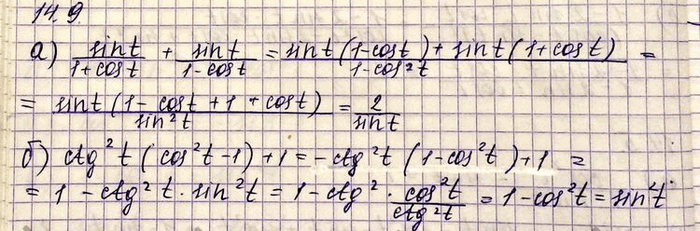 14.9.
а) sint/(1+cost) + sint/(1-cost) = (sint(1-cost)+sint(1+cost))/(1-cos²t) =
= sint(1-cost+1+cost)/sin²t = 2/sint
б) ctg²t(cos²t-1)+1=-ctg²t(1-cos²t)+1 =
= 1-ctg²t·sin²t = 1-ctg²·cos²t/ctg²t = 1-cos²t = sin²t